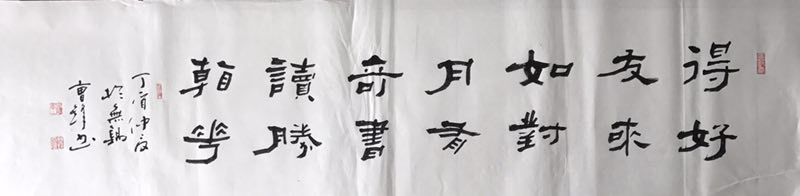 得好
友來
如對
月有
奇書
讀勝
朝花
丁酉仲夏
於無錫
曹